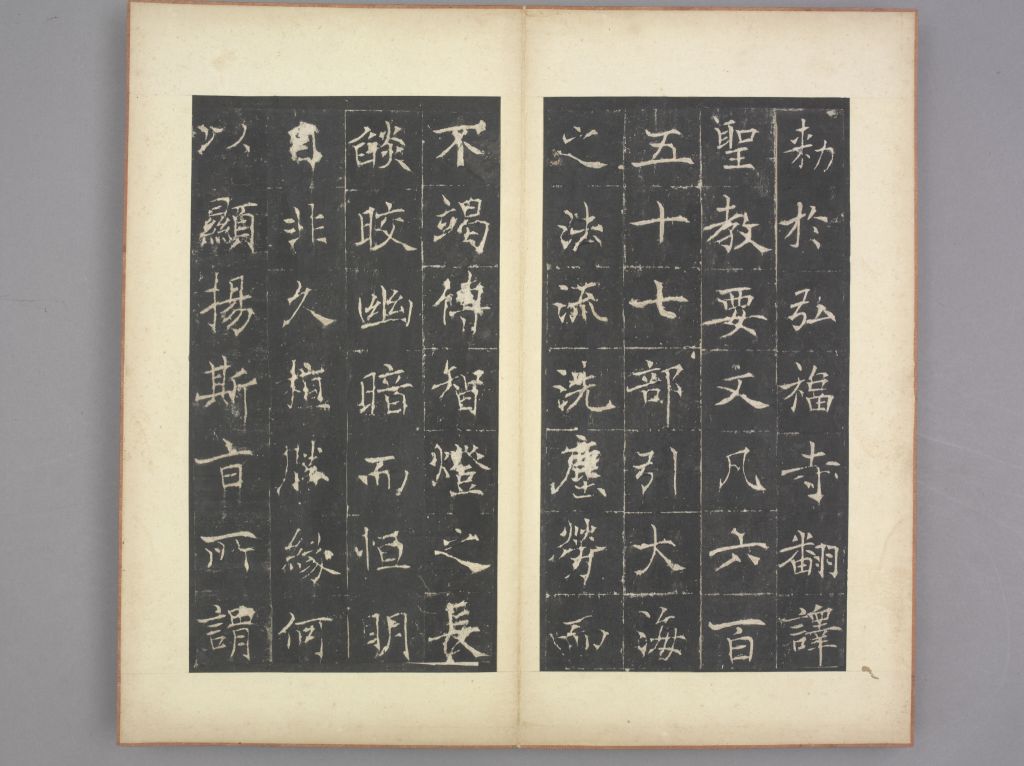 勅於弘福寺翻譯
聖教要文凡六百
五十七部引大海
之法流洗塵勞而
不竭傳智燈之長
燄晈幽暗而恒明
自非久植勝緣何
以顯揚斯旨所謂